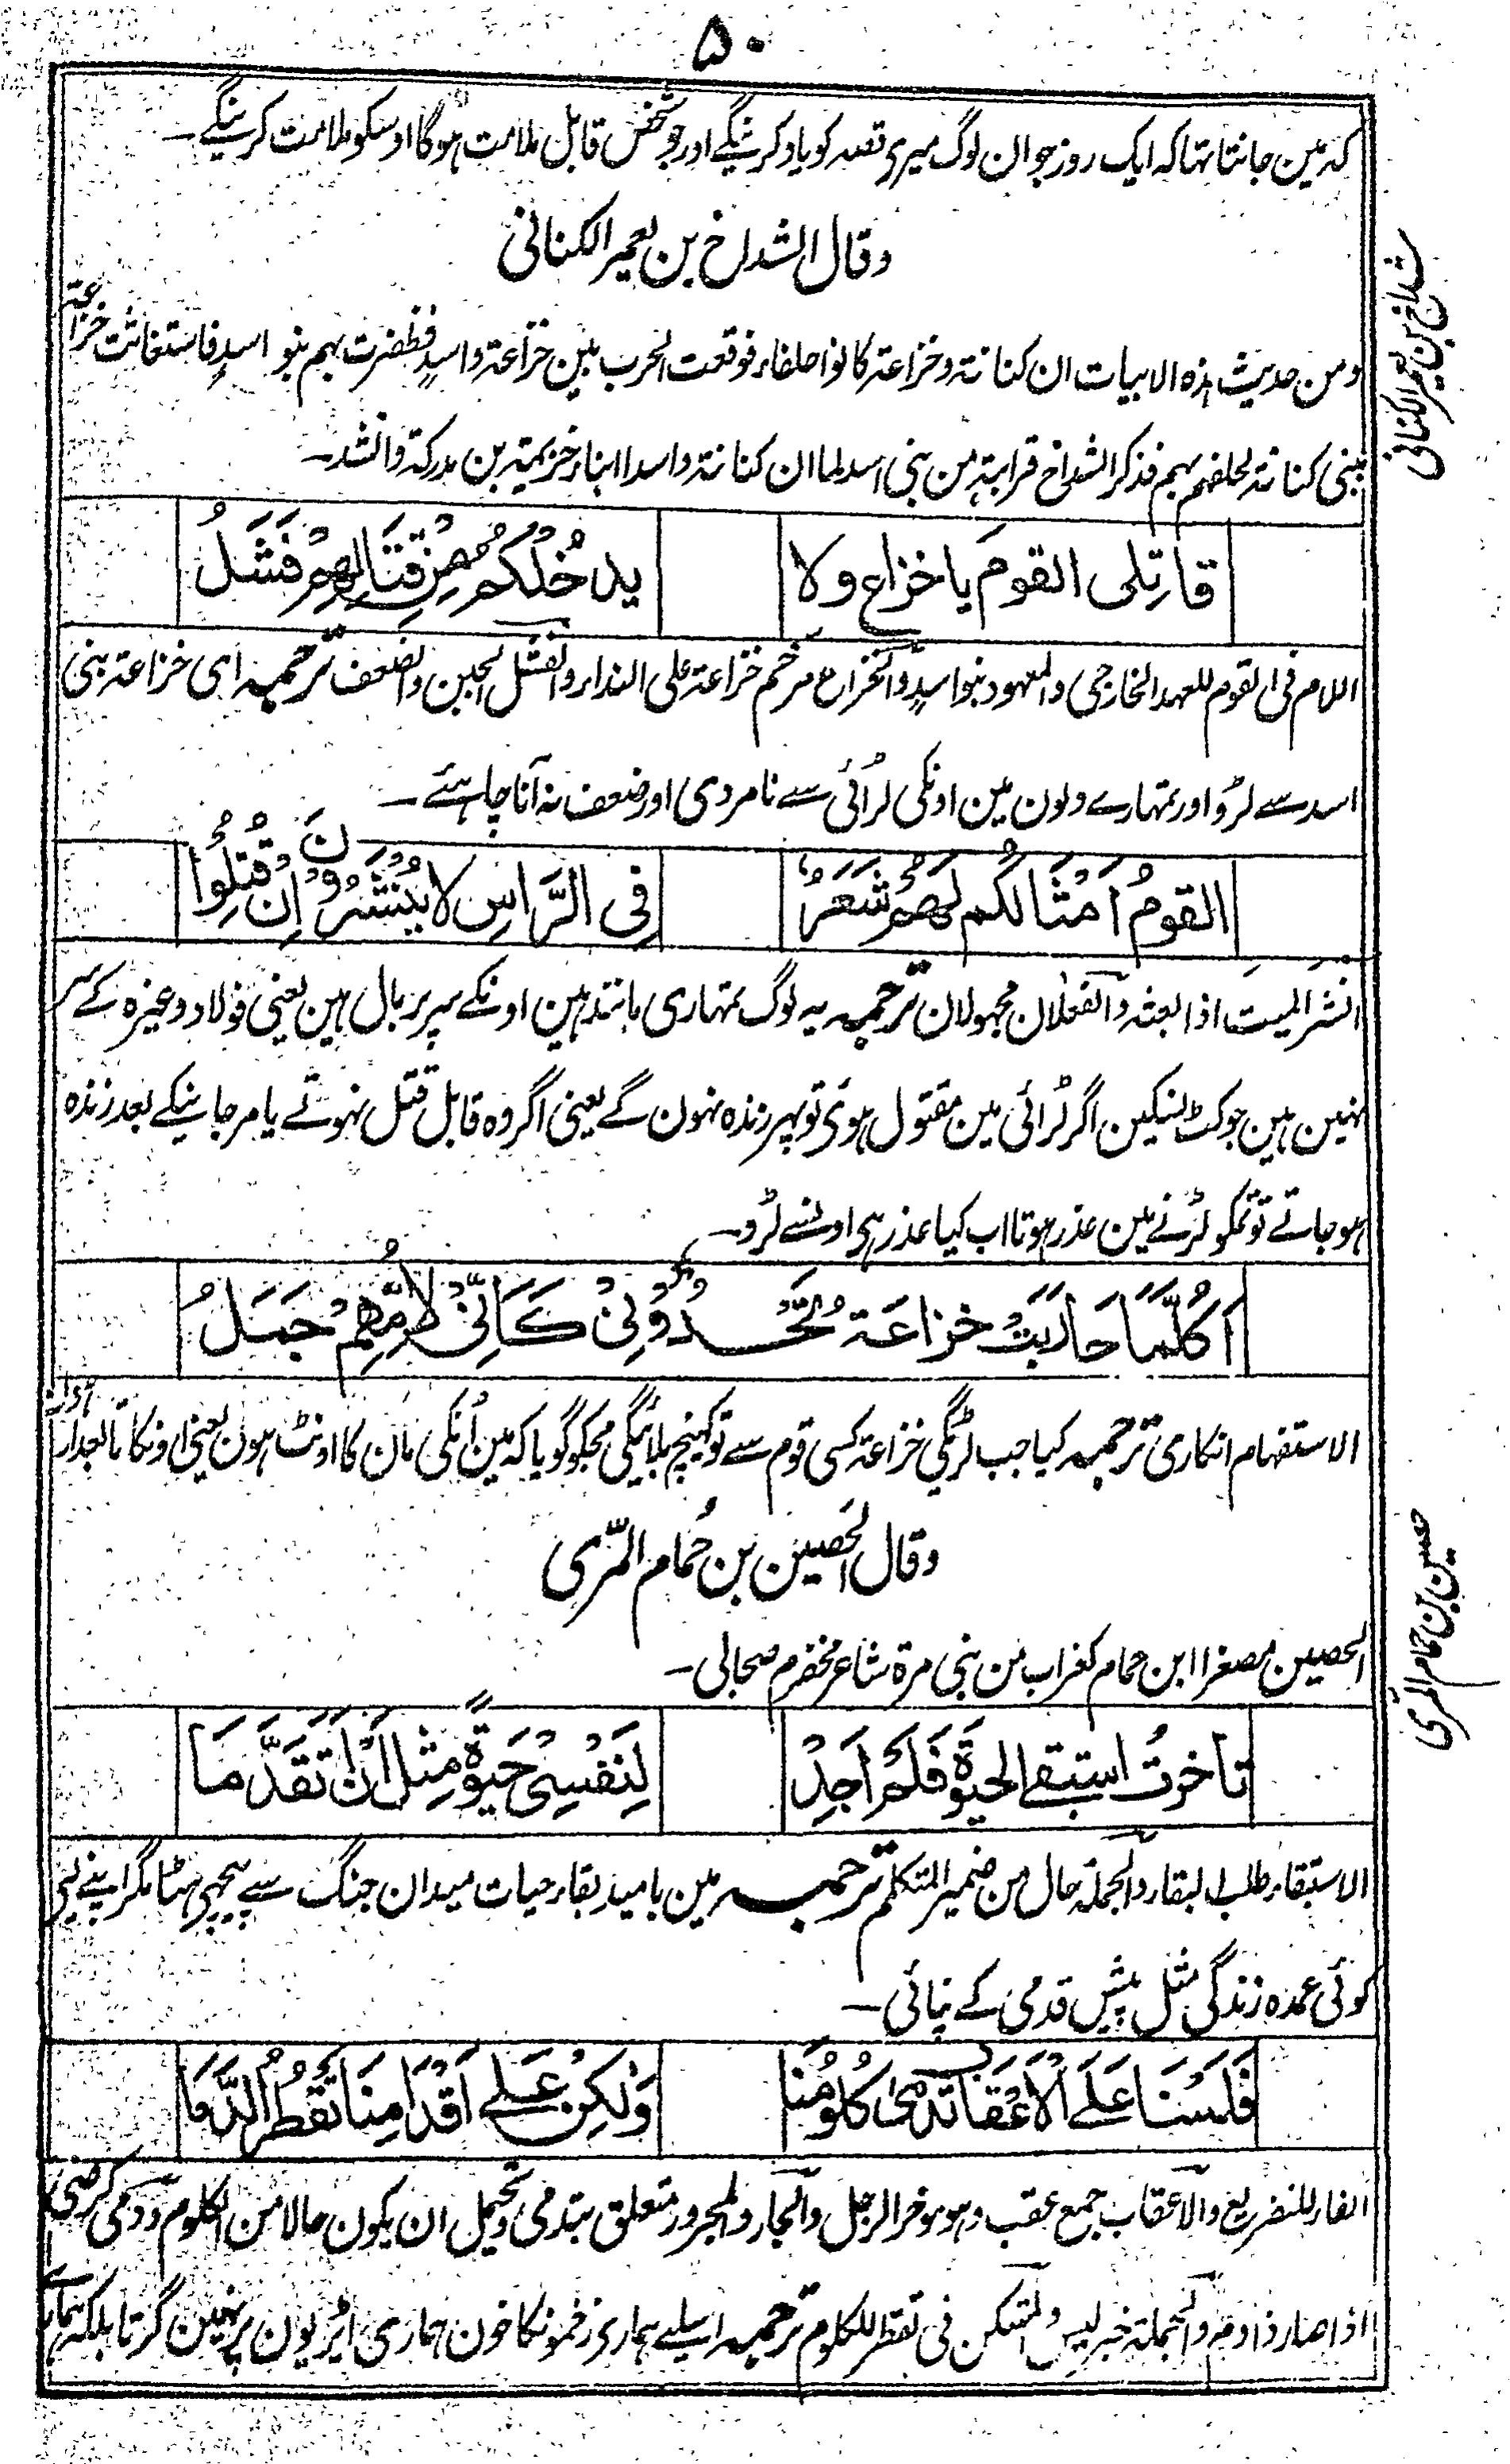 ۵۰
کہ مین جانتا تھا کہ ایک روز جوان لوگ میری قصہ کو یاد کرینگے اور جو شخص قابل ملامت ہوگا اوسکو ملامت کرینگے۔
وقال الشداخ بن یعمیر الکنانی
شداخ بن یعمر الکنانی
ومن حدیث ہذہ الابیات ان کنانۃ وخزاعۃ کانوا حلفاء فوقعت الحرب بین خزاعۃ واسدٍ فظفرت بہم بنو اسدٍ فاستغاثت خزاعۃ
ببنی کنانۃ لحلفہم بہم فذکر الشداخ قرابتہ من بنی اسد لما ان کنانۃ واسدا ابناء خزیمۃ بن مدرکۃ وانشد۔
قاتِلی القومَ یا خزاع ولا
یدخُلْکُمُ مِنْ قِتَالِهِمْ فَشَلُ
اللام فی القوم للعہد الخارجی والمعہود بنو اسدٍ والخزاع مرخم خزاعۃ علی النداء والفشل الجبن والضعف ترجمہ ای خزاعۃ بنی
اسد سے لڑو اور تمہارے دلون مین اونکی لڑائی سے نامردی اور ضعف نہ آنا چاہئے۔
القومُ اَمْثَالُکُم لَهُمْ شَعَرٌ
فِی الرَّاسِ لا یُنْشَرُوْنَ اِنْ قُتِلُوا
انشر المیت اذا بعثہ والفعلان مجہولان ترجمہ یہ لوگ تمہاری مانند ہین اونکے سر پر بال ہین یعنی فولاد وغیرہ کے سر
نہین ہین جو کٹ نسکین اگر لڑائی مین مقتول ہوئ تو پھر زندہ نہون گے یعنی اگر وہ قابل قتل نہوتے یا مرجانیکے بعد زندہ
ہو جاتے تو تمکو لڑنے مین عذر ہوتا اب کیا عذر ہی اونسے لڑو۔
اَکُلَّمَا حَارَبَتْ خزاعَة تَحْدُوْنِیْ کَاَنِّیْ لِاُمِّهِمْ جَمَلُ
الاستفہام انکاری ترجمہ کیا جب لڑیگی خزاعۃ کسی قوم سے تو کھینچ بلائیگی مجکو گویا کہ مین اُنکی مان کا اونٹ ہون یعنی اونکا تابعدار ہون
وقال الحُصین بن حُمام المّری
حصین بن حمام المری
الحصین مصغرا ابن حمام کغراب من بنی مرۃ شاعر مخضرم صحابی۔
تاخرتُ استبقے الحیوةَ فَلَمْ اَجِدْ
لِنَفْسِیْ حَیٰوةً مِثْلَ اَنْ اَتَقَدَّمَا
الاستبقاء طلب البقاء والجملۃ حال من ضمیر المتکلم ترجمہ مین بامید بقاء حیات میدان جنگ سے پیچھی ہٹا مگر اپنے لیی
کوئی عمدہ زندگی مثل پیش قدمی کے نپائی۔
فَلَسْنَا عَلَے الْاَعْقَابِ تَدْمٰی کُلُومُنَا
وَلٰکِنْ عَلے اَقْدَامِنَا تَقْطُرُ الدَّمَا
الفاء للتفریع والاعقاب جمع عقب وہو موخر الرجل والجار والمجرور متعلق بتدمی ویحتمل ان یکون حالا من الکلوم ودمی کرضی
اذا صار ذا دم والجملۃ خبر لیس والمستکن فی تقطر للکلوم ترجمہ اسلیے ہماری زخمونکا خون ہماری ایڑیون پر نہین گرتا بلکہ ہمارے